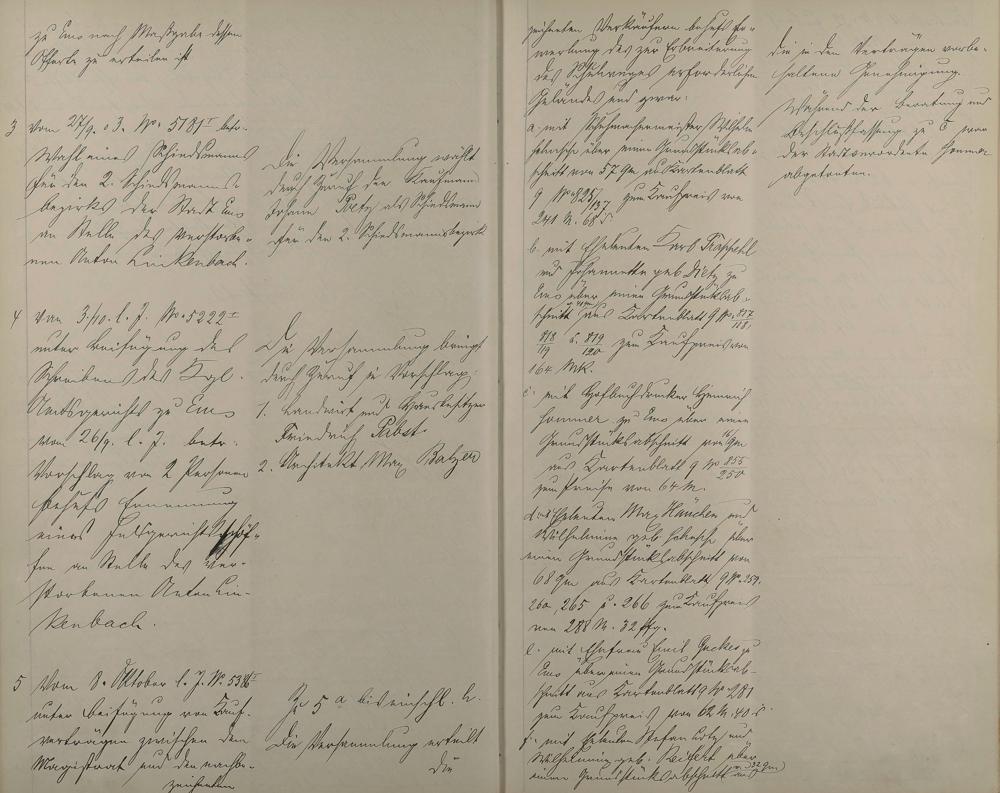 zu Ems nach Maßgabe dessen
Offerte zu erteilen ist
3 Vom 27/9. 03. No. 5181 I betr.
Wahl eines Schiedsmanns
für den 2. Schiedsmanns-
bezirk der Stadt Ems
an Stelle des verstorbe-
nen Anton Linkenbach.
Die Versammlung wählt
durch Zuruf den Kaufmann
Johann als Schiedsmann
für den 2. Schiedsmannsbezirk
4 Vom 3./10. l. J. No. 5222 I
unter Beifügung des
Schreibens des Kgl.
Amtsgerichts zu Ems
vom 26/9. l. J. betr.
Vorschlag von 2 Personen
behufs Ernennung
eines Feldgerichtsschöf-
fen an Stelle des ver-
storbenen Anton Lin-
kenbach.
Die Versammlung bringt
durch Zuruf in Vorschlag:
1. Landwirt und Hausbesitzer
Friedrich Pabst.
2. Architekt Max Balzer
5 Vom 8. Oktober l. J. No. I
unter Beifügung von Kauf-
verträgen zwischen dem
Magistrat und den nachbe-
zeichneten
Zu 5 a bis einschl. h.
Die Versammlung erteilt
die
zeichneten Verkäufern behufs Er-
werbung des zur Erbreiterung
des Schulweges erforderlichen
Geländes und zwar:
a. mit Schuhmachermeister Wilhelm
über einen Grundstücksab-
schnitt von 57 qm aus Kartenblatt
9 No 325/137 zum Kaufpreis von
241 M. 68
b. mit Eheleuten Karl
und Johannette geb. Dietz zu
Ems über einen Grundstücksab-
schnitt aus Kartenblatt 9 No. 817/118,
818/119 u. 819/120 zum Kaufpreis von
164 Mk.
c. mit Hofbuchdrucker Heinrich
Sommer zu Ems über einen
Grundstücksabschnitt von 16 qm
aus Kartenblatt 9 No 855/250
zum Preise von 64 M.
d. Eheleuten Max Häuchen und
Wilhelmine geb. über
einen Grundstücksabschnitt von
68 qm aus Kartenblatt 9 No. 259.
260, 265 u. 266 zum Kaufpreis
von 288 M. 32 Pfg.
e. mit Ehefrau Emil zu
Ems über einen Grundstücksab-
schnitt aus Kartenblatt 9 No 281
zum Kaufpreis von 62 M. 40
f. mit Eheleuten Stefan und
Wilhelmine geb. Reifert über
einen Grundstücksabschnitt von 32 qm
die in den Verträgen vorbe-
haltene Genehmigung.
Während der Beratung und
Beschlußfassung zu c war
der Stadtverordnete Sommer
abgetreten.